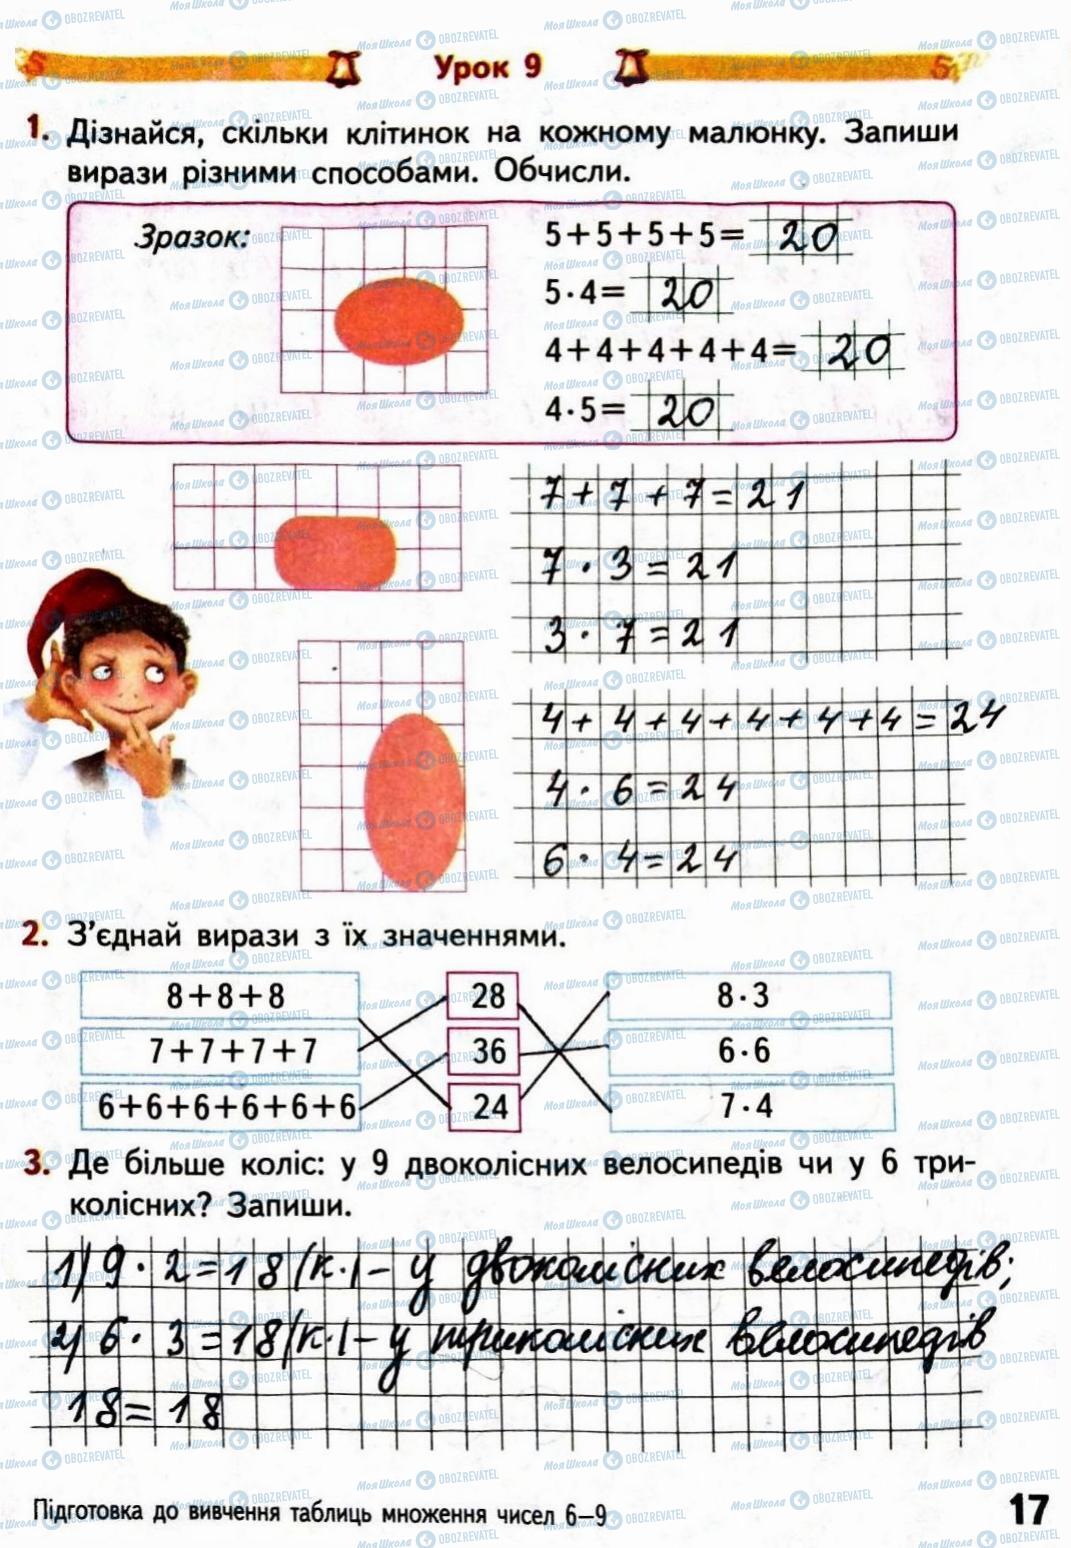 Урок 9
1. Дізнайся, скільки клітинок на кожному малюнку. Запиши
вирази різними способами. Обчисли.
Зразок:
5+5+5+5= 20
5·4= 20
4+4+4+4+4= 20
4·5= 20
7+7+7=21
7·3=21
3·7=21
4+4+4+4+4+4=24
4·6=24
6·4=24
2. З’єднай вирази з їх значеннями.
8+8+8 28 8·3
7+7+7+7 36 6·6
6+6+6+6+6+6 24 7·4
3. Де більше коліс: у 9 двоколісних велосипедів чи у 6 три-
колісних? Запиши.
1) 9·2=18(к.)– у двоколісних велосипедів;
2) 6·3=18(к.)– у триколісних велосипедів
18=18
Підготовка до вивчення таблиць множення чисел 6–9
17
МояШкола OBOZREVATEL